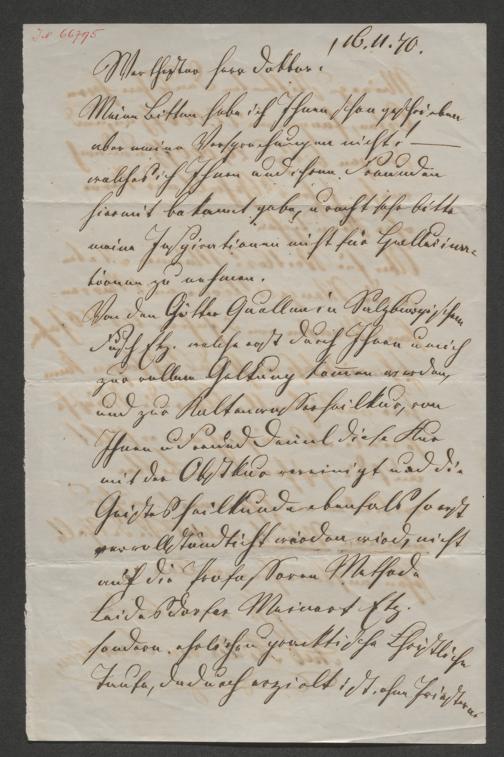 I.N. 66795
16.11.70.
Werthester Herr Doktor!
Meine Bitten habe ich Ihnen schon geschrieben
aber meine Versprechungen nicht! —
welches ich Ihnen und ihren Freunden
hiermit bekannt gebe, u recht sehr bitte
meine Inspirationen nicht für Hallucina-
tionen zu nehmen.
Von den Götter Quellen in Salzburgischen
Fusch Etz. welche erst durch Ihnen u mich
zur vollen Geltung komen werden,
und zur Kaltenwasserheilkur, von
Ihnen u Freund diese Kur
mit der Obstkur vereinigt und die
Geistesheilkunde ebenfals so erst
vervollständlicht werden wird, nicht
auf die Professoren Methode
Leidesdorfer Meinert Etz.
sondern ehrlichen practtische Christliche
Taufe, dadurch erzielt ist, ohne